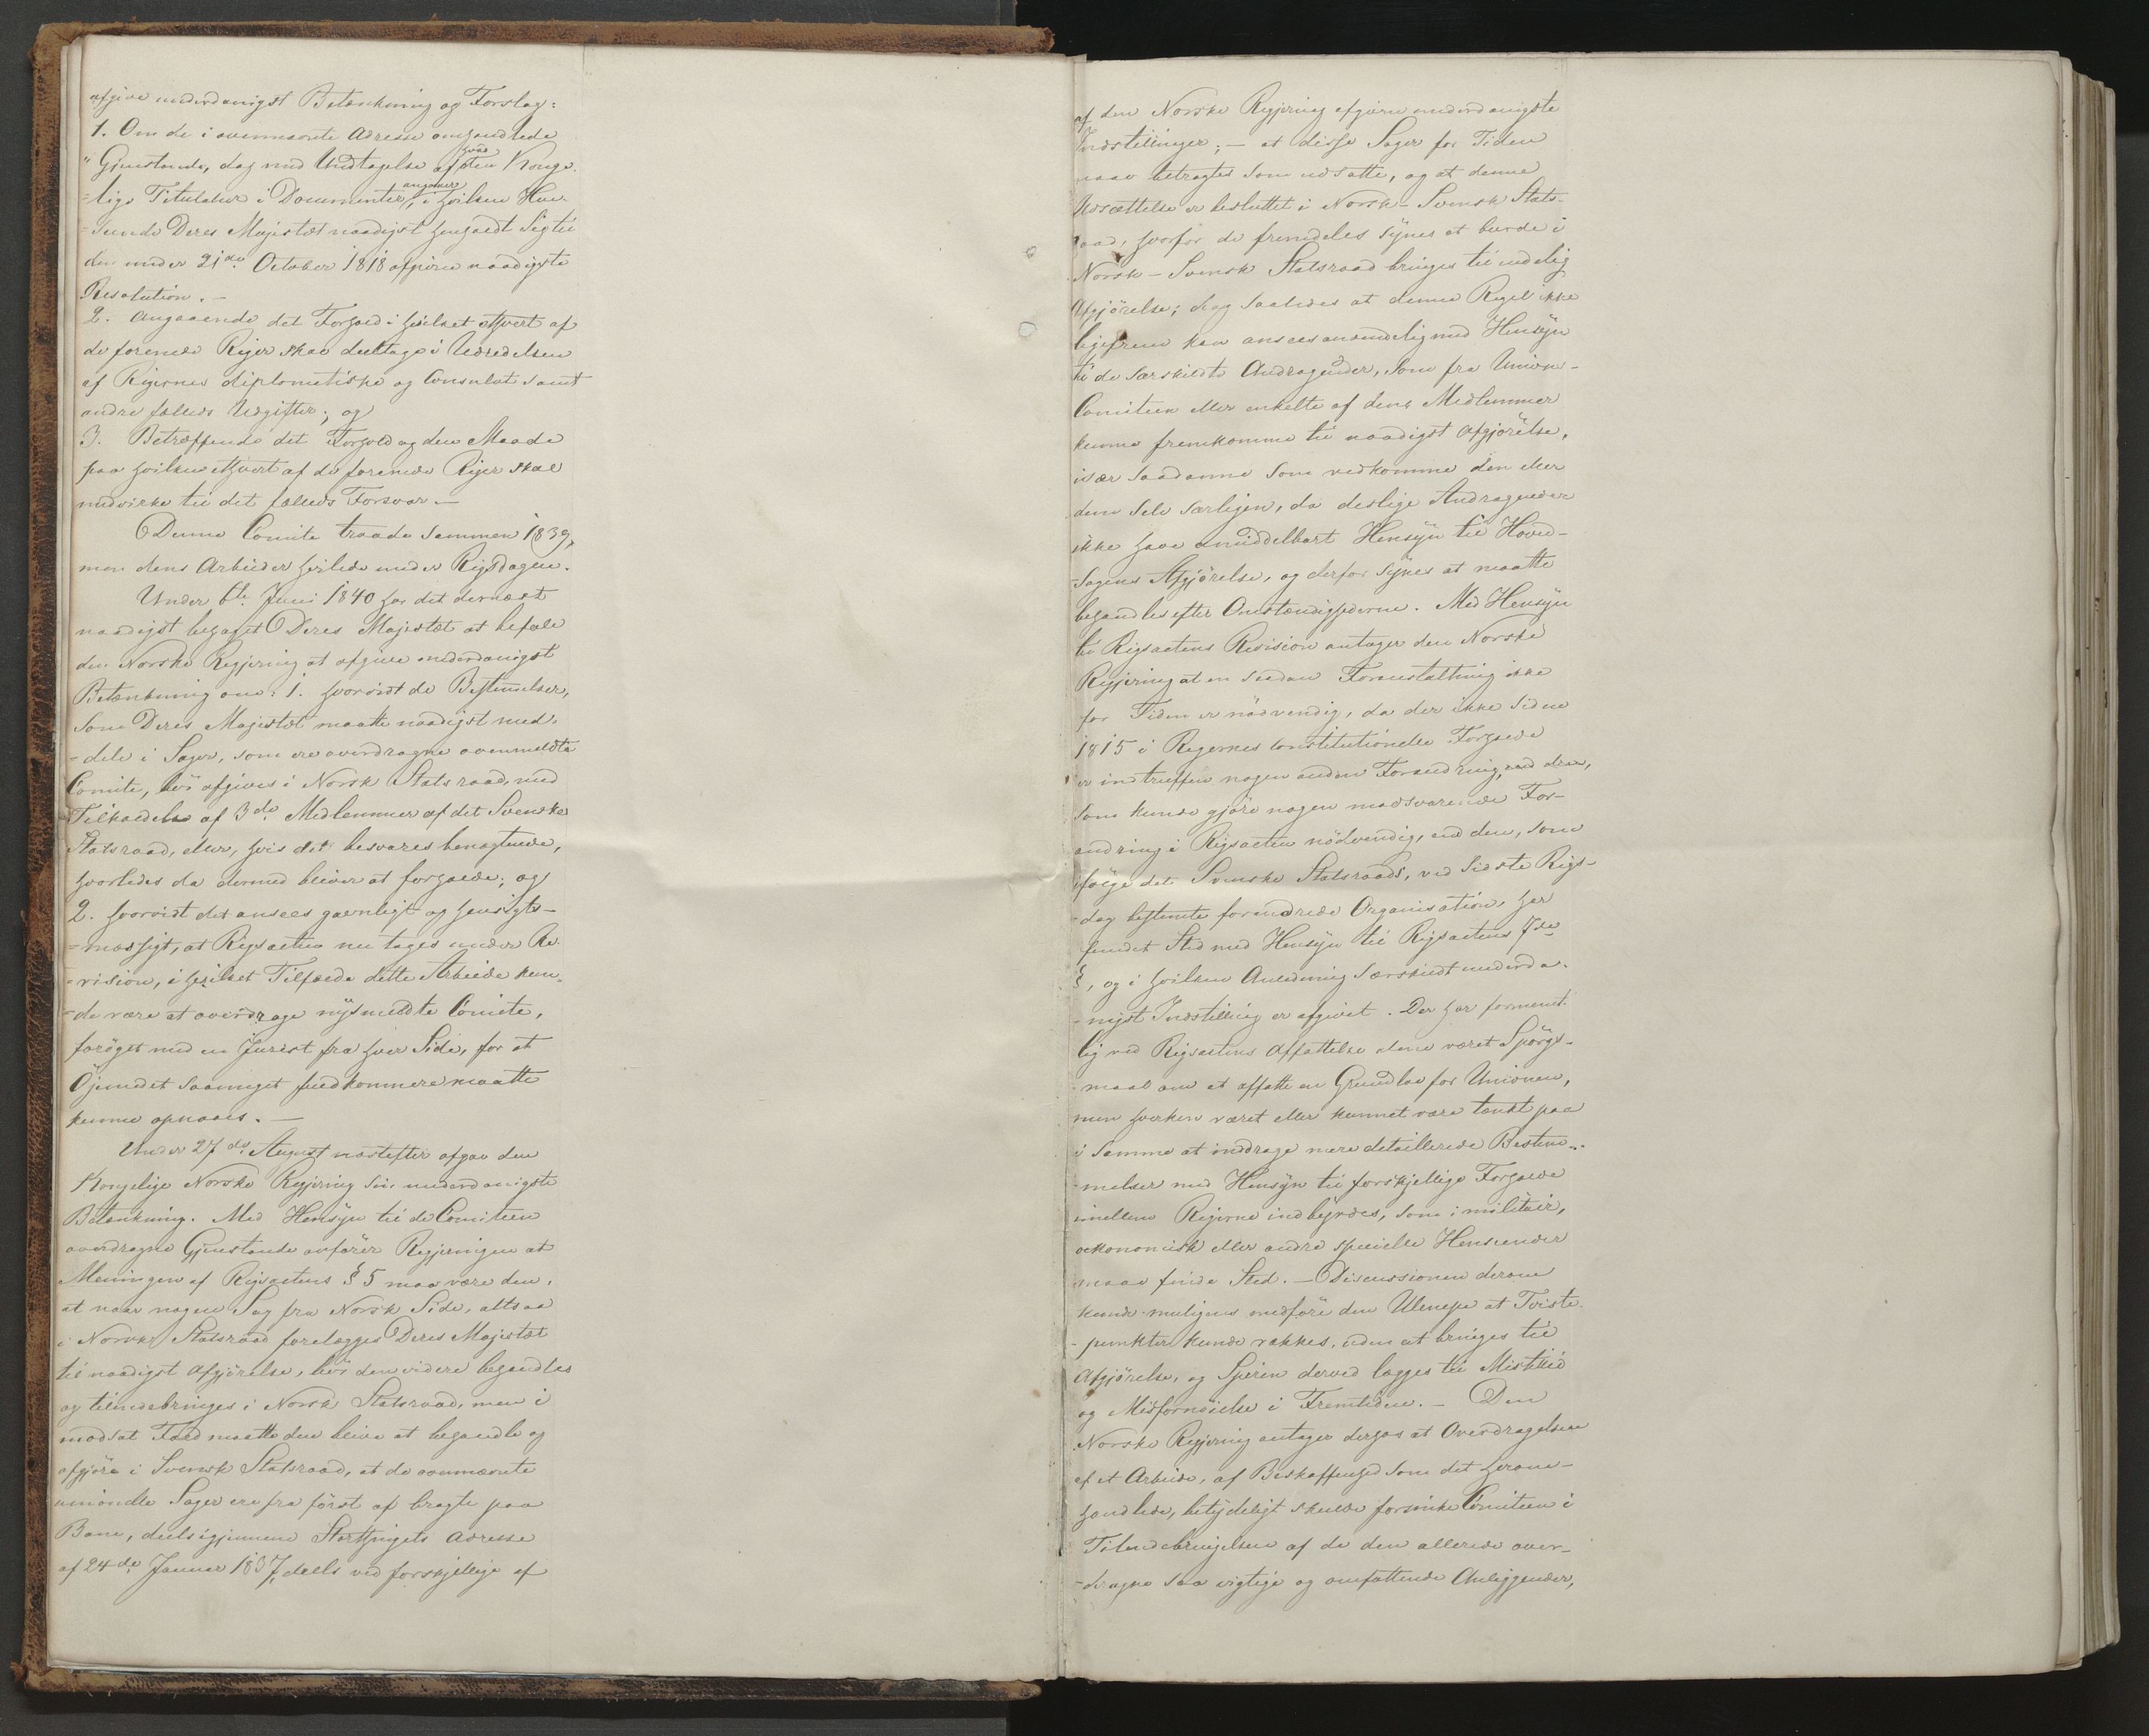 afgive underdanigst Betænkning og Forslag:
1. Om de i ovennævnte Adresse omhandlede
"Gjenstande, dog med Undtagelse af hvad den Konge-
-lige Titulatur i Documenter angaaer, i hvilken Hen-
-seende Deres Majestæt naadigst henholdt Sig til
den under 21de October 1818 afgivne naadigste
Resolution. –
2. Angaaende det Forhold i hvilket ethvert af
de forenede Riger skal deeltage i Udredelsen
af Rigernes diplomatiske og Consulats samt
andre fælleds Udgifter; og
3. Betræffende det Forhold og den Maade
paa hvilken ethvert af de forenede Riger skal
medvirke til det fælleds Forsvar. –
Denne Comite traadte sammen 1839,
men dens Arbeider hvilede under Rigsdagen.
Under 6te Juni 1840 har det dernæst
naadigst behaget Deres Majestæt at befale
den Norske Regjering at afgive underdanigst
Betænkning om: 1. hvorvidt de Bestemmelser,
som Deres Majestæt maatte naadigst med-
-dele i Sager, som ere overdragne ovenmeldte
Comite, bör afgives i Norsk Statsraad, med
Tilkaldelse af 3de Medlemmer af det Svenske
Statsraad, eller, hvis det besvares benægtende,
hvorledes da dermed bliver at forholde; og
2. hvorvidt det ansees gavnligt og hensigts-
-mæssigt, at Rigsacten nu tages under Re-
-vision, i hvilket Tilfælde dette Arbeide kun-
-de være at overdrage nysmeldte Comite,
foröget med en Jurist fra hver Side, for at
Öjemedet saameget fuldkomnere maatte
kunne opnaaes. –
Under 27de August næstefter afgav den
Kongelige Norske Regjering sin underdanigste
Betænkning. Med Hensyn til de Comiteen
overdragne Gjenstande anförer Regjeringen at
Meningen af Rigsactens § 5 maa være den,
at naar nogen Sag fra Norsk Side, altsaa
i Norsk Statsraad forelægges Deres Majestæt
til naadigst Afgjörelse, bör den videre behandles
og tilendebringes i Norsk Statsraad, men i
modsat Fald maatte den blive at behandle og
afgjöre i Svensk Statsraad, at de ovennævnte
unionelle Sager ere fra först af bragte paa
Bane, deels igjennem Storthingets Adresse
af 24de Januar 1837, deels ved forskjellige af
af den Norske Regjering afgivne underdanigste
Indstillinger; – at disse Sager for Tiden
maae betragtes som udsatte, og at denne
Udsættelse er besluttet i Norsk-Svensk Stats-
raad, hvorfor de fremdeles synes at burde i
Norsk-Svensk Statsraad bringes til endelig
Afgjörelse; dog saaledes at denne Regel ikke
ligefrem kan ansees anvendelig med Hensyn
til de særskildte Andragender, som fra Union-
Comiteen eller enkelte af dens Medlemmer
kunne fremkomme til naadigst Afgjörelse,
især saadanne som vedkomme den eller
dem selv særligen, da deslige Andragender
ikke have umiddelbart Hensyn til Hoved-
-Sagens Afgjörelse, og derfor synes at maatte
behandles efter Omstændighederne. Med Hensyn
til Rigsactens Revision antager den Norske
Regjering at en saadan Foranstaltning ikke
for Tiden er nödvendig, da der ikke siden
1815 i Rigernes constitutionelle Forholde
er indtruffen nogen anden Forandring,
som kunde gjöre nogen modsvarende For-
andring i Rigsacten nödvendig, end den, som
ifölge det Svenske Statsraads, ved sidste Rigs-
-dag bestemte forandrede Organisation, har
fundet Sted med Hensyn til Rigsactens 7de
§, og i hvilken Anledning særskildt underda-
-nigst Indstilling er afgivet. Der har forment-
lig ved Rigsactens Affattelse alene været Spörgs-
-maal om at affatte en Grundlov for Unionen,
men hverken været eller kunnet være tænkt paa
i samme at inddrage mere detaillerede Bestem-
-melser med Hensyn til forskjellige Forholde
imellem Rigerne indbyrdes, som i militair,
oekonomisk eller andre specielle Henseender
maae finde Sted. – Discussionen derom
kunde muligens medföre den Ulempe at Tviste-
-punkter kunde vækkes, uden at bringes til
Afgjörelse, og Spiren derved lægges til Mistillid
og Misfornöielse i Fremtiden. – Den
Norske Regjering antager derhos at Overdragelsen
af et Arbeide, af Beskaffenhed som det herom-
handlede, betydeligt skulde forsinke Comiteen i
Tilendebringelsen af de den allerede over-
-dragne saa vigtige og omfattende Anliggender,